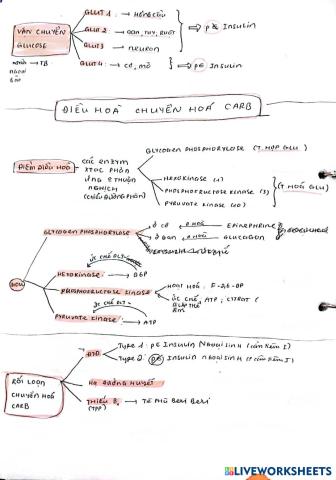 VẬN CHUYỂN GLUCOSE
GLUT 1 : → HỒNG CẦU
GLUT 2 : → GAN, TỤY, RUỘT
GLUT 3 → NEURON
GLUT 4 : → CƠ, MỠ
Insulin
⇒ pĐ Insulin
→ TB
ngoại
ĐIỀU HOÀ CHUYỂN HOÁ CARB
ĐIỂM ĐIỀU HOÀ
CÁC ENZYM
XTOC PHẢN
ỨNG KTHUẬN
NGHỊCH
(CHIỀU ĐƯỜNG PHÂN)
GLYCOGEN PHOSPHORYLASE (T. HỢP GLU)
HEXOKINASE (1)
PHOSPHOFRUCTOSE KINASE (3)
PYRUVATE KINASE (10)
(T HOÁ GLU)
GLYCOGEN PHOSPHORYLASE
Ở CƠ
EPINEPHRINE
Ở GAN
GLUCAGON
HEXOKINASE → G6P
PHOSPHOFRUCTOSE KINASE
HOẠT HOÁ : F-2,6-DP
ỨC CHẾ : ATP, CITRAT
PYRUVATE KINASE → ATP
RỐI LOẠN CHUYỂN HOÁ CARB
ĐTĐ
Type 1 : pĐ Insulin Ngoại sinh
Type 2 : pĐ Insulin ngoại sinh
HẠ ĐƯỜNG HUYẾT
THIẾU B1 → TÊ PHÙ Beri Beri
(TPP)
LIVEWORKSHEETS